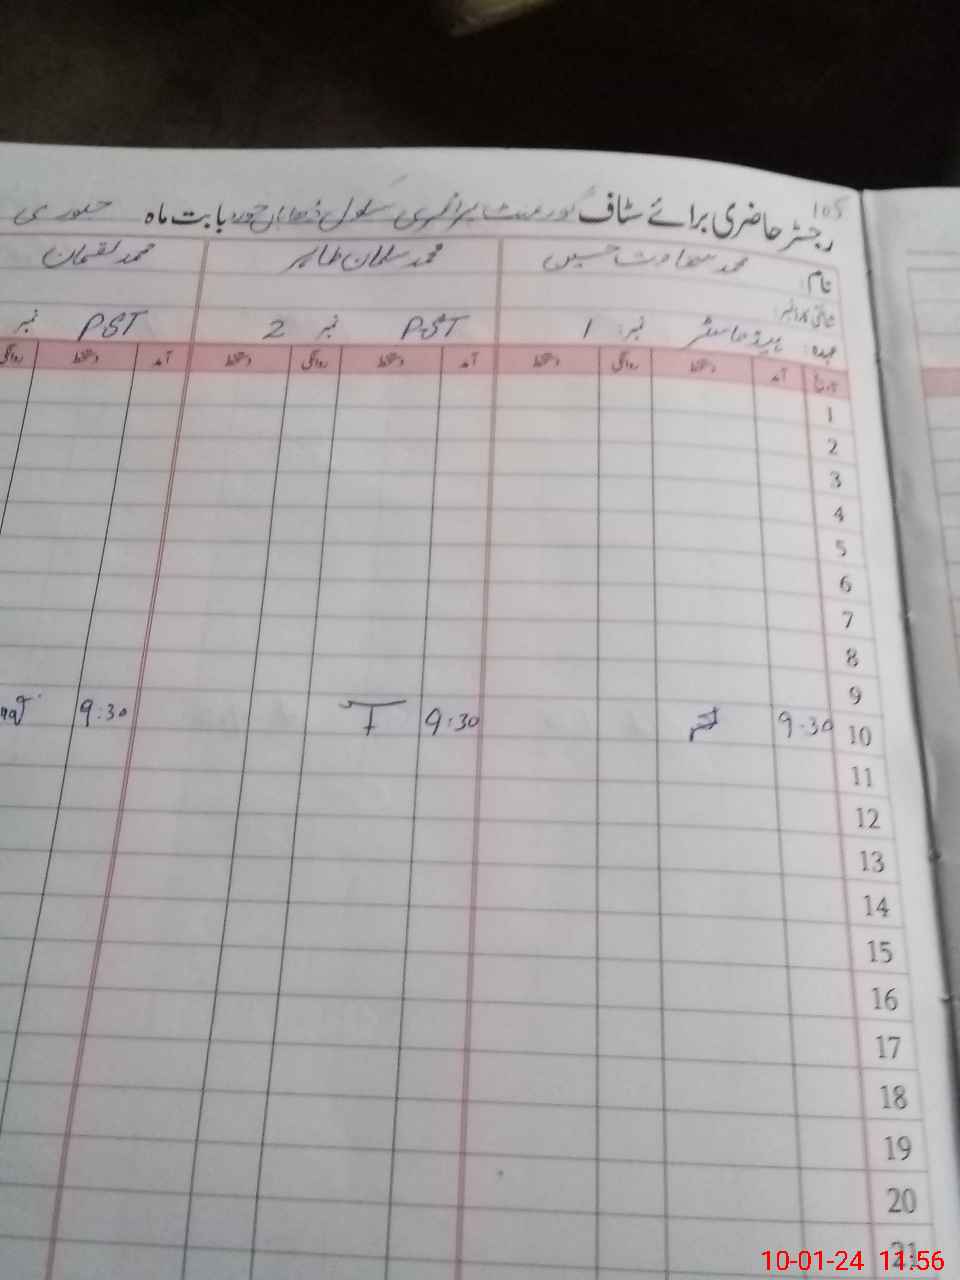 105
رجسٹر حاضری برائے سٹاف گورنمنٹ پرائمری سکول بابت ماہ جنوری
نام: محمد سعادت حسین محمد سلمان طاہر محمد لقمان
شناختی کارڈ نمبر:
عہدہ: ہیڈ ماسٹر نمبر: 1 PST نمبر 2 PST نمبر
تاریخ آمد دستخط روانگی دستخط آمد دستخط روانگی دستخط آمد دستخط روانگی
1
2
3
4
5
6
7
8
9
10 9:30 9:30 9:30
11
12
13
14
15
16
17
18
19
20
21
10-01-24 11:56